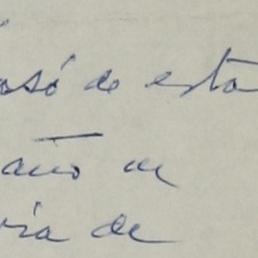 pasó de esta
año de
ria de